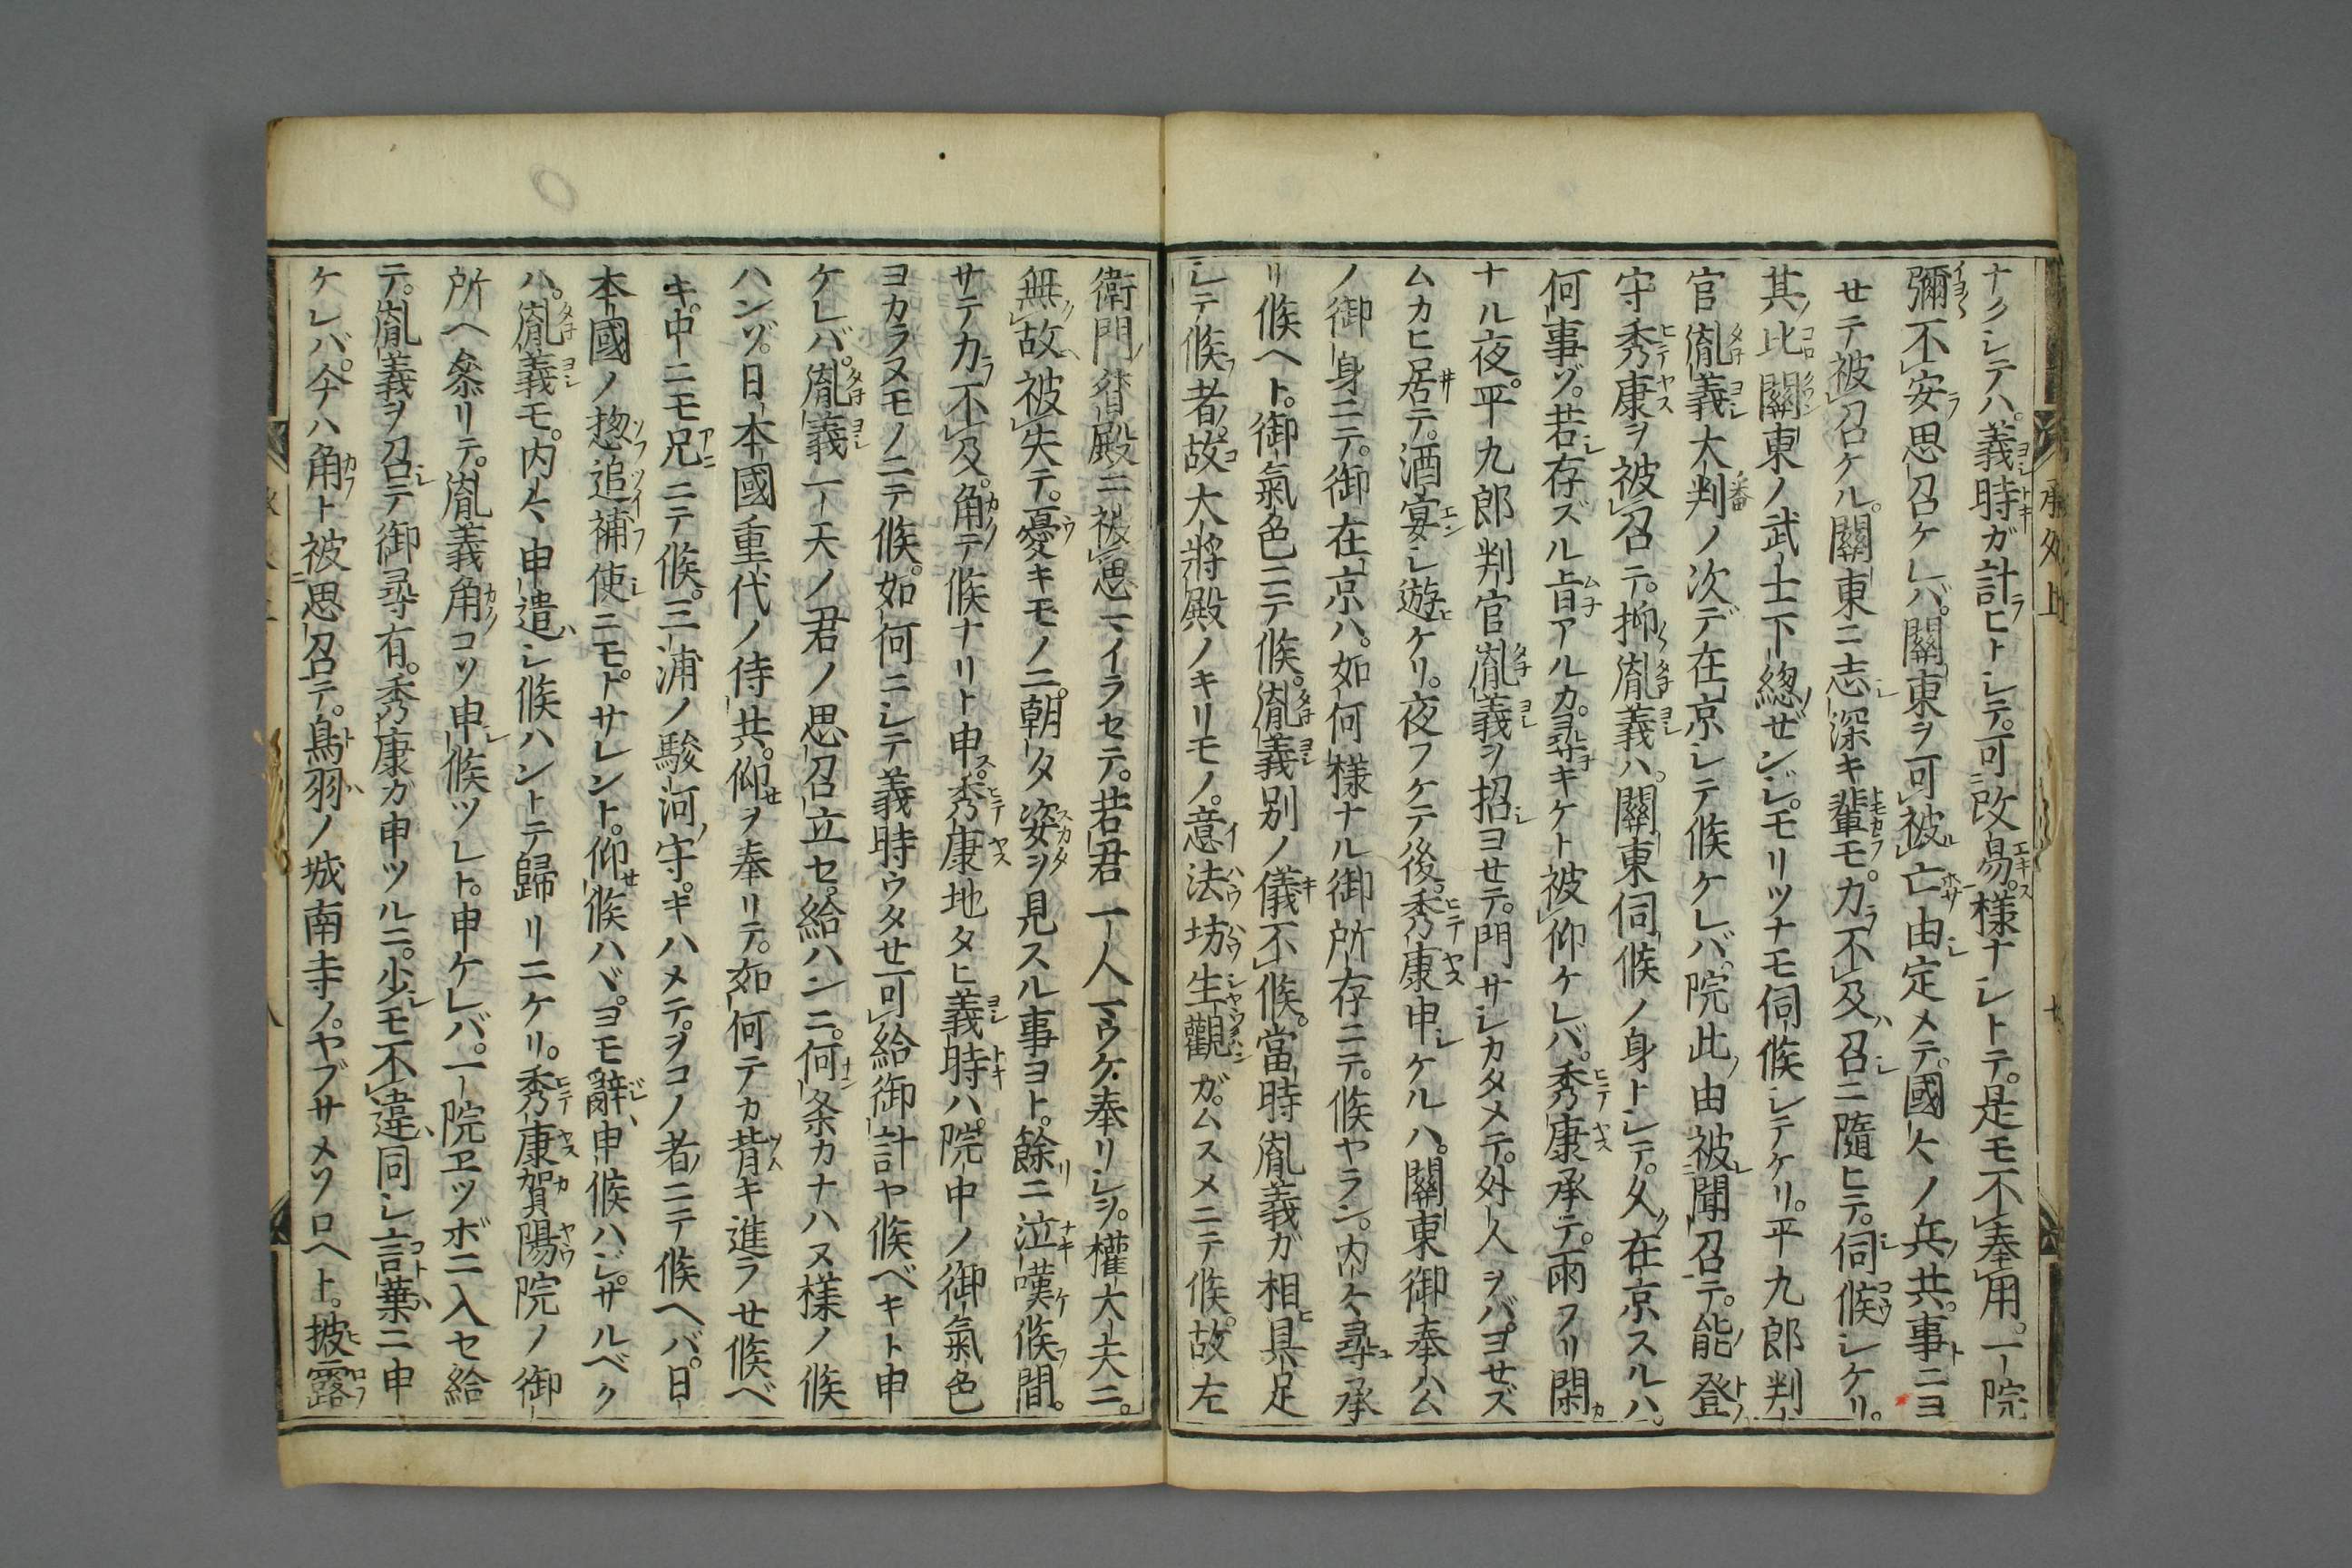 ナクシテハ。義時ガ計ヒトシテ。可改易。様ナシトテ。是モ不奉用。一院
彌不安思召ケレバ。關東ヲ可被亡由定メテ。國々ノ兵共。事ニヨ
セテ被召ケル。關東ニ志深キ輩モ。力不及召ニ隨ヒテ。伺候シケリ。
其比關東ノ武士下總ゼンジ。モリツナモ伺候シテケリ。平九郎判
官胤義大判ノ次デ在京シテ候ケレバ。院此由被聞召テ。能登
守秀康ヲ被召テ。抑胤義ハ。關東伺候ノ身トシテ。久在京スルハ。
何事ゾ。若存ズル旨アルカ。尋キケト被仰ケレバ。秀康承テ。雨フリ閑
ナル夜。平九郎判官胤義ヲ招ヨセテ。門サシカタメテ。外人ヲバヨセズ
ムカヒ居テ。酒宴シ遊ケリ。夜フケテ後。秀康申ケルハ。關東御奉公
ノ御身ニテ。御在京ハ。如何樣ナル御所存ニテ。候ヤラン。内々尋承
リ候ヘト。御氣色ニテ候。胤義別ノ儀不候。當時胤義ガ相具足
シテ候者。故大將殿ノキリモノ。意法坊生觀ガ。ムスメニテ候。故左
衛門督殿ニ被思マイラセテ。若君一人マウケ奉リシヲ。權大夫ニ。
無故被失テ。憂キモノニ。朝タ姿ヲ見スル事ヨト。餘ニ泣嘆候間。
サテカ不及。角テ候ナリト申ス。秀康地タヒ義時ハ。院中ノ御氣色
ヨカラヌモノニテ候。如何ニシテ義時ウタセ可給御計ヤ候ベキト申
ケレバ。胤義一天ノ君ノ思召立セ給ハンニ。何条カナハヌ樣ノ候
ハンゾ。日本國重代ノ侍共。仰ヲ奉リテ。如何テカ背キ進ラセ候ベ
キ。中ニモ兄ニテ候。三浦ノ駿河守。キハメテヲコノ者ニテ候ヘバ。日
本國ノ惣追補使ニモ。ナサレント。仰候ハヾ。ヨモ辭申候ハジ。サルベク
ハ。胤義モ。内々申遣シ候ハントテ歸リニケリ。秀康賀陽院ノ御
所ヘ參リテ。胤義角コソ申候ツレト。申ケレバ。一院ヱツボニ入セ給
テ。胤義ヲ召テ御尋有。秀康カ申ツルニ。少モ不違同シ言葉ニ申
ケレバ。今ハ角ト被思召テ。鳥羽ノ城南寺ノ。ヤブサメソロヘト。披露